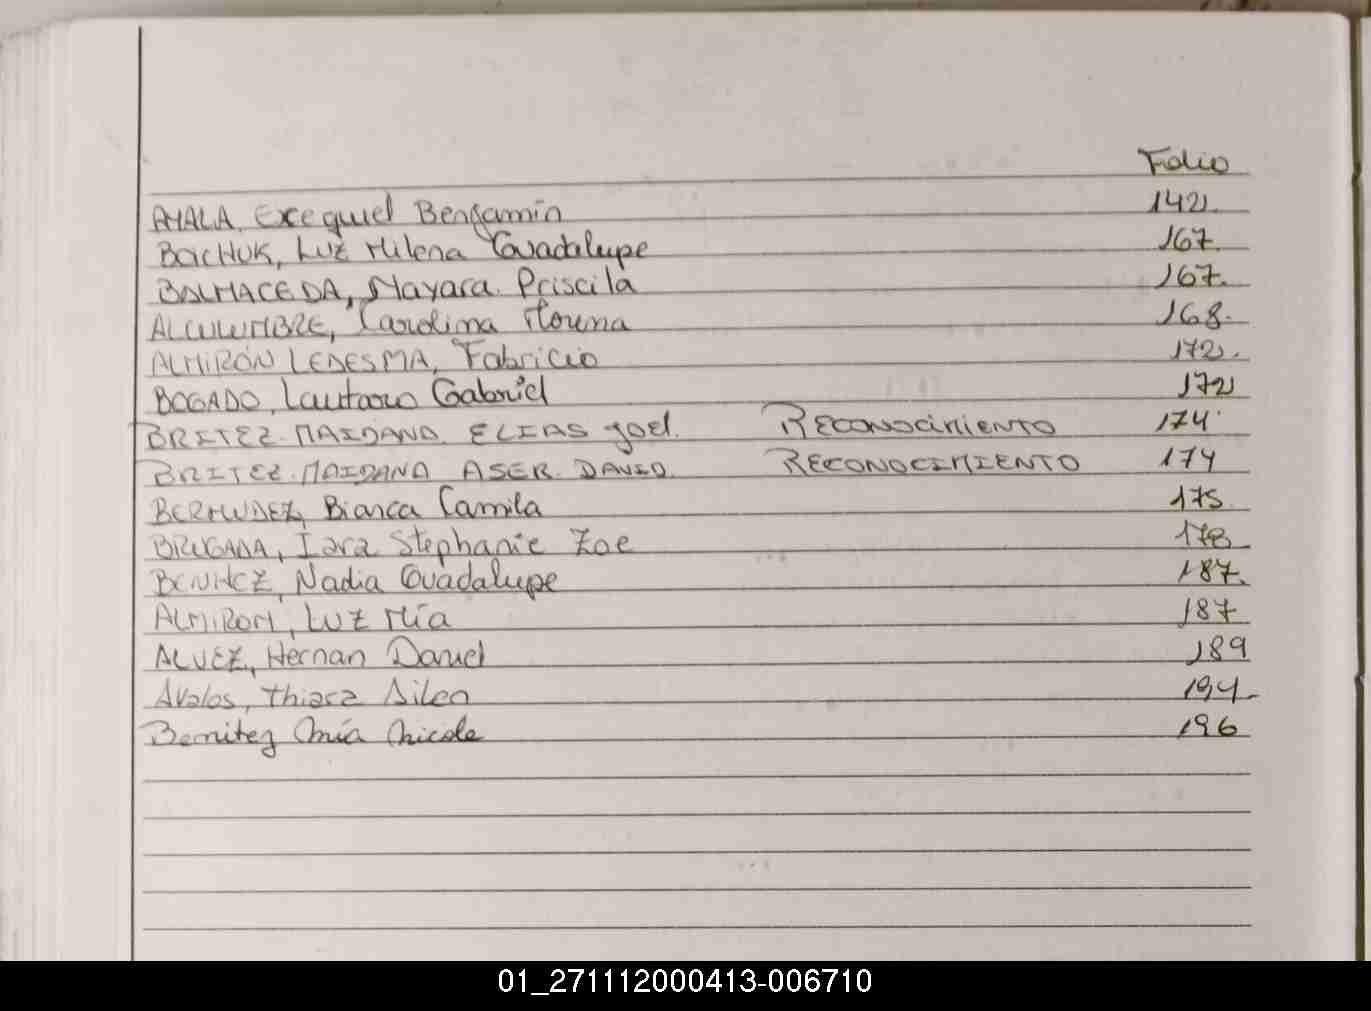 Folio
AYALA, Exequiel Benjamín 142
BOICHUK, Luz Milena Guadalupe 167
BALMACEDA, Nayara Priscila 167
Carolina 168
ALMIRÓN LEDESMA, Fabricio 172
BOGADO, Lautaro Gabriel 172
BRITEZ MAIDANA ELIAS Joel. RECONOCIMIENTO 174
BRITEZ MAIDANA ASER DAVID RECONOCIMIENTO 174
BERMUDEZ, Bianca Camila 175
BRUGADA, Iara Stephanie Zoe 178
BENITEZ, Nadia Guadalupe 187
ALMIRON, Luz Mía 187
ALVEZ, Hernan Daniel 189
Avalos, Thiara Ailen 194
Benitez Mía Nicole 196
01_271112000413-006710